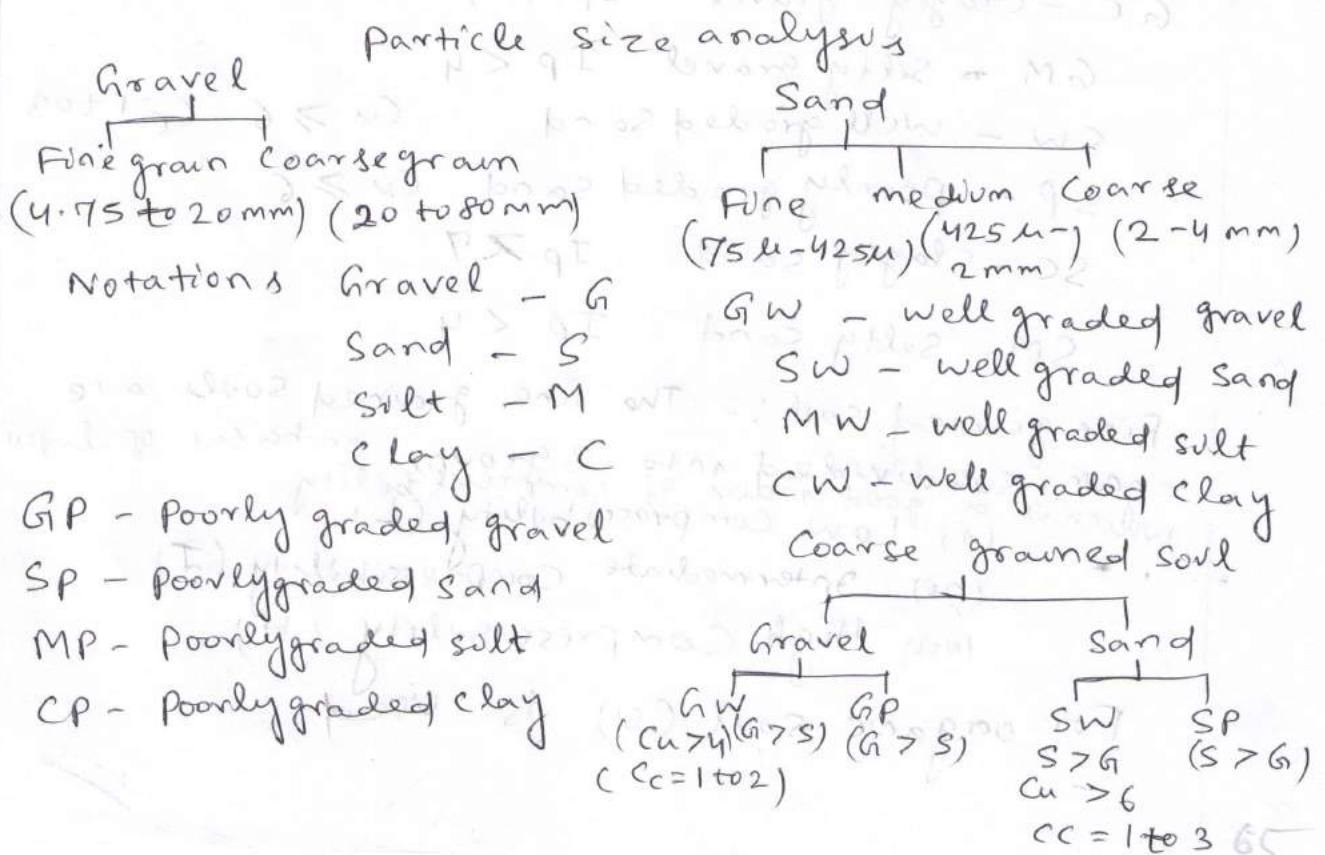 Particle size analysis
Gravel
Fine grain Coarse grain
(4.75 to 20mm) (20 to 80mm)
Sand
Fine medium Coarse
(75μ-425μ) (425μ- 2mm) (2-4 mm)
Notations Gravel - G
Sand - S
Silt - M
Clay - C
GW - well graded gravel
SW - well graded sand
MW - well graded silt
CW - well graded clay
GP - Poorly graded gravel
SP - Poorly graded sand
MP - Poorly graded silt
CP - Poorly graded clay
Coarse grained soil
Gravel Sand
GW GP
(Cu >4) (G > S) (G > S)
(Cc = 1 to 2)
SW SP
S > G (S > G)
Cu > 6
CC = 1 to 3